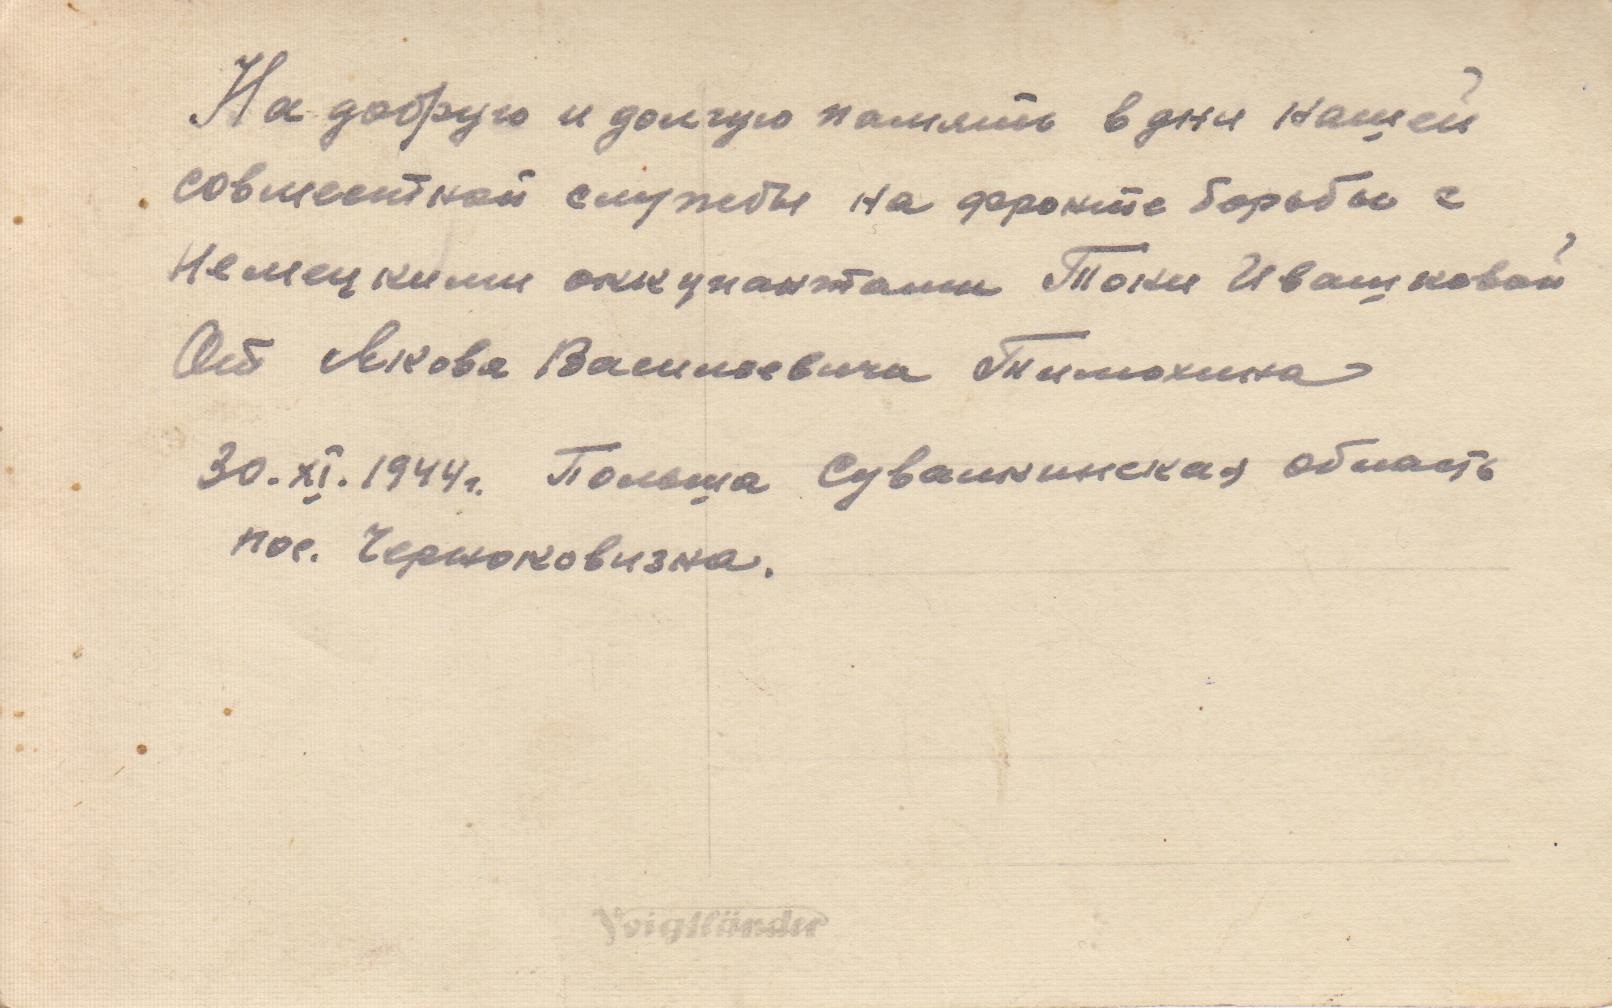 На добрую и долгую память в дни нашей
совместной службы на фронте борьбы с
немецкими оккупантами Тони Ивашковой
От Якова Васильевича Тимохина
30.XI.1944г. Польша Сувалкинская область
пос. Черноковизна.
Voigtländer